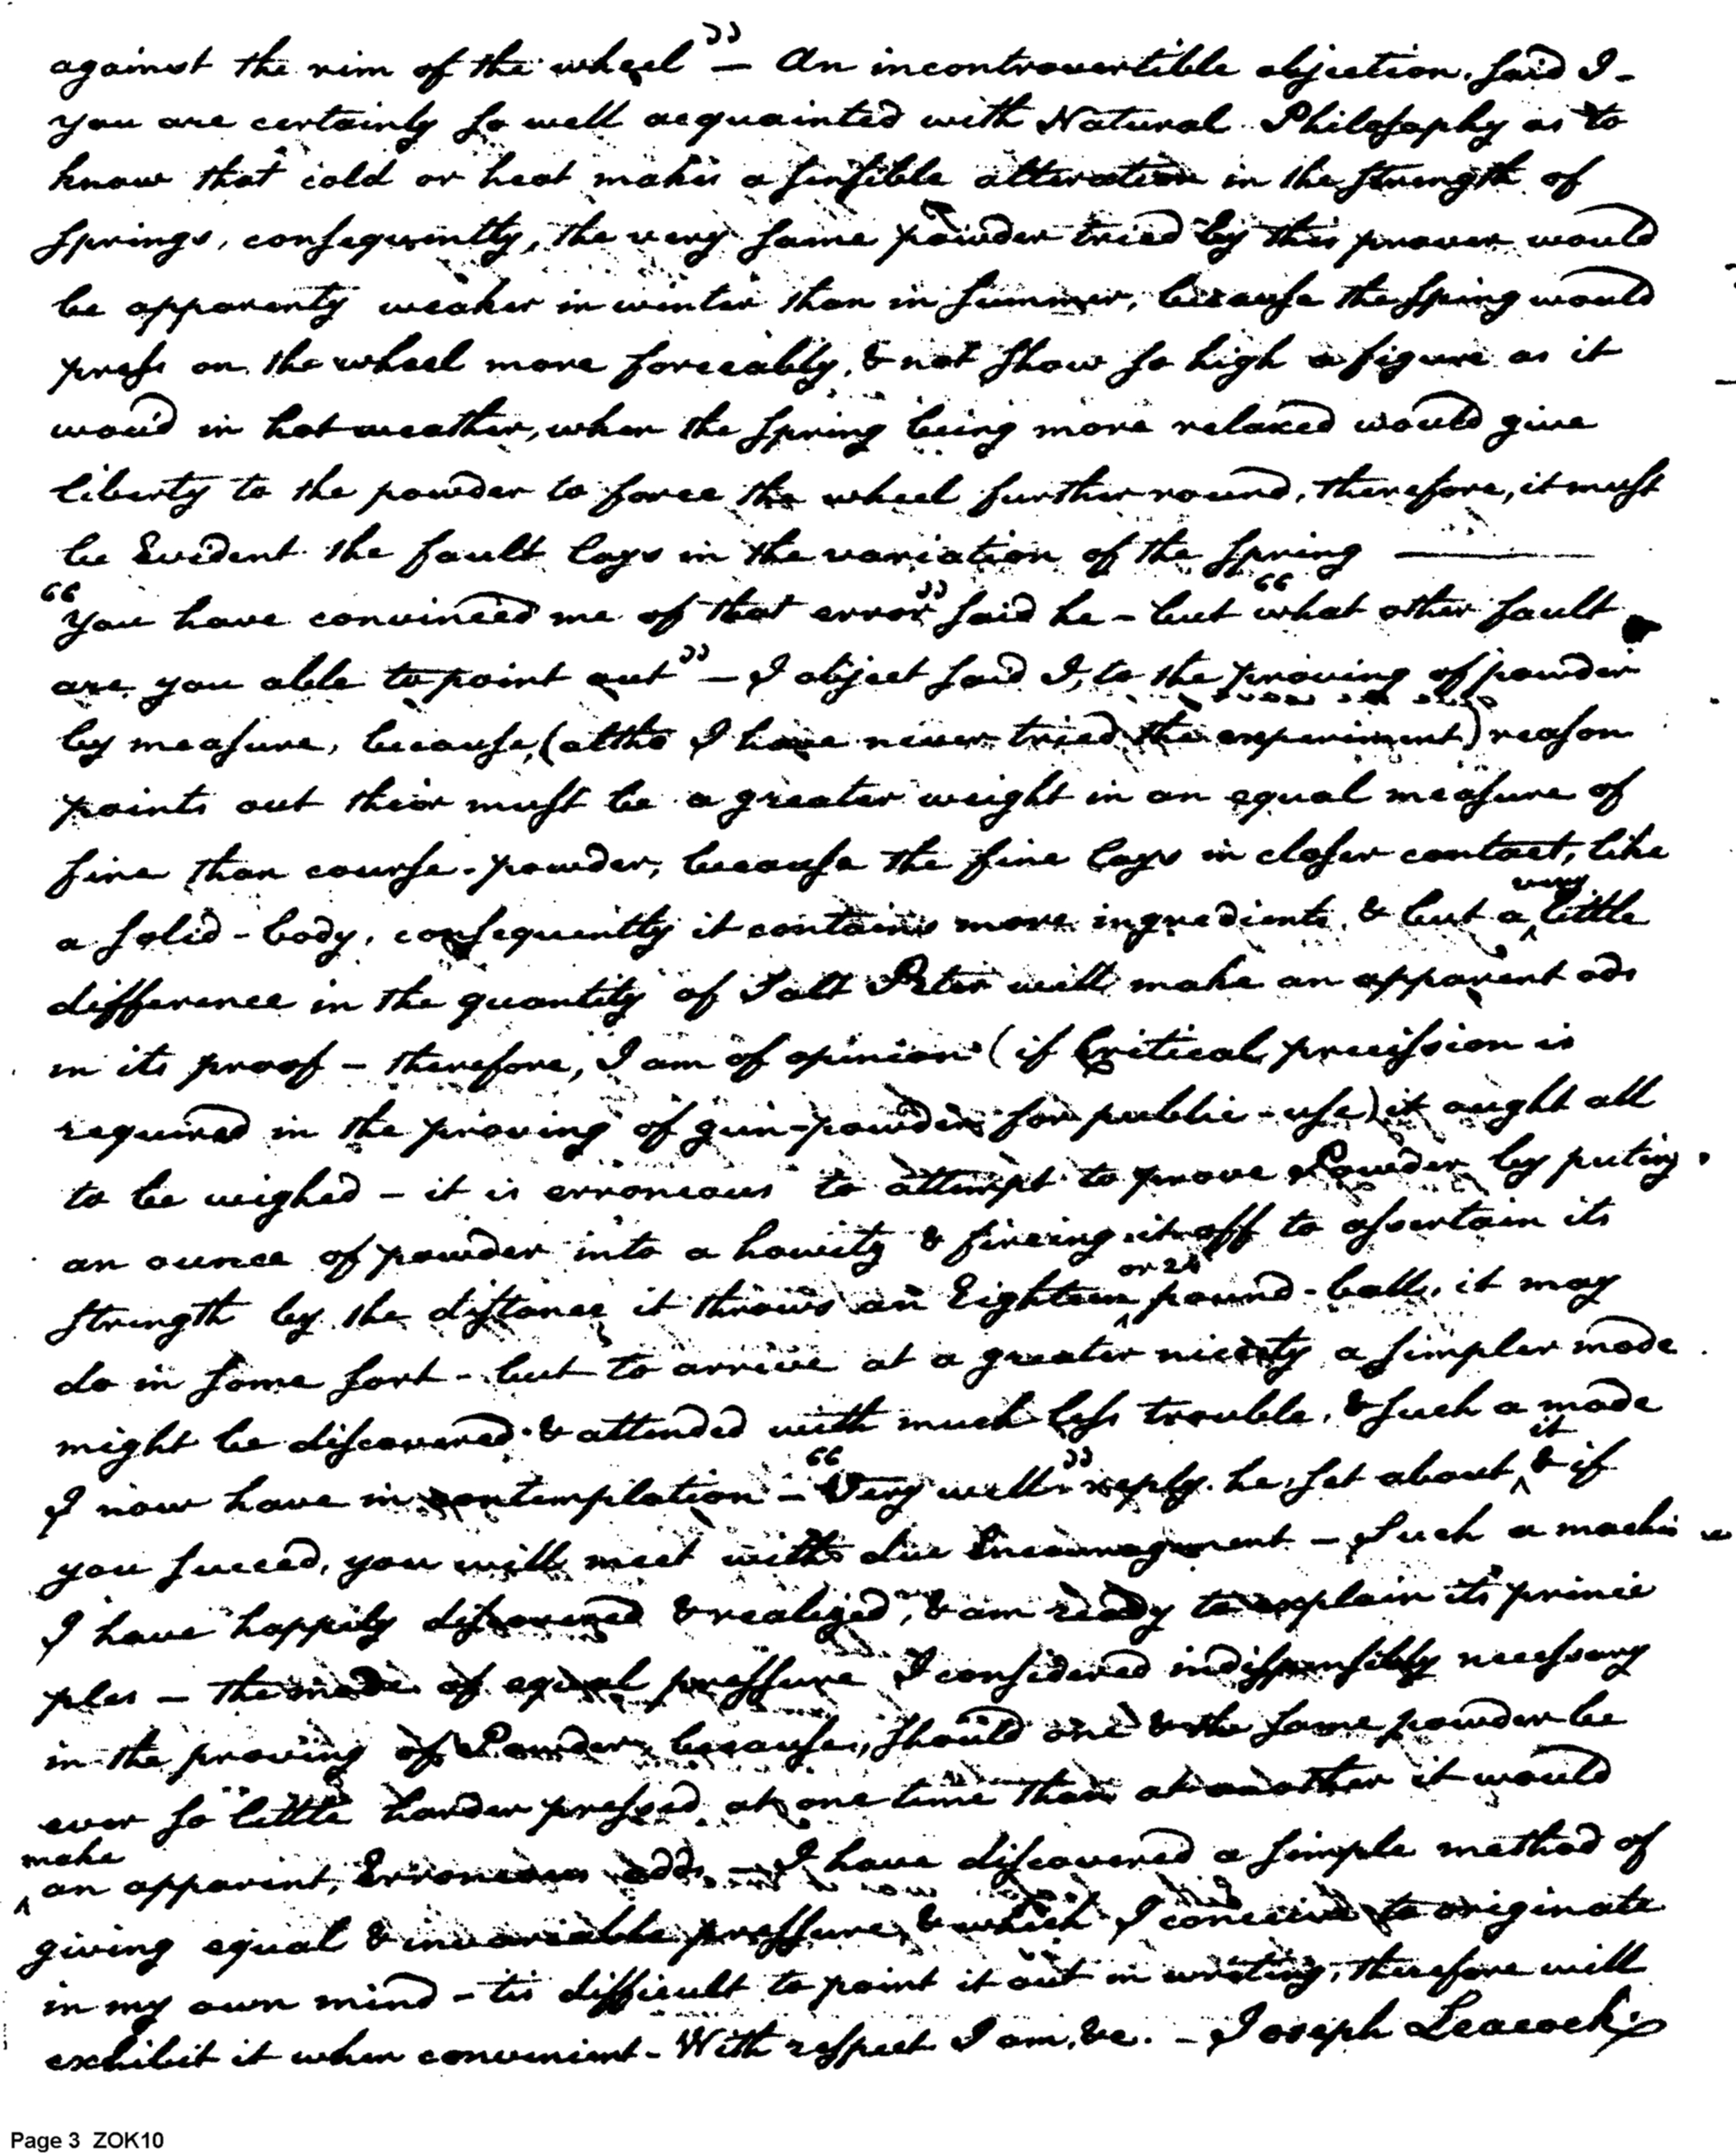 against the rim of the wheel" — An incontrovertible objection, said I -
you are certainly so well acquainted with Natural Philosophy as to
know that cold or heat makes a sensible alteration in the strength of
springs, consequently, the very same powder tried by this prover would
be apparenty weaker in winter than in summer, because the spring would
press on the wheel more forceably, & not show so high a figure as it
would in hot weather, when the spring being more relaxed would give
liberty to the powder to force the wheel further round, therefore, it must
be Evident the fault lays in the variation of the spring ———
"you have convinced me of that error" said he - but "what other fault
are you able to point out" — I object said I, to the proving of powder
by measure, because, (altho I have never tried the experiment) reason
points out their must be a greater weight in an equal measure of
fine than course-powder, because the fine lays in closer contact, like
a solid-body, consequently it contains more ingredients, & but a very little
difference in the quantity of Salt Peter will make an apparent ods
in its proof - therefore, I am of opinion (if Critical precission is
required in the proving of gun-powder for public-use) it ought all
to be weighed - it is erroneous to attempt to prove Powder by puting
an ounce of powder into a howitz & fireing it off to assertain its
strength by the distance it throws an Eighteen or 24 pound-ball, it may
do in some sort - but to arrive at a greater nicety a simpler mode
might be discovered & attended with much less trouble, & such a mode
I now have in contemplation - "Very well" reply he, set about it & if
you succeed, you will meet with due Encouragement - Such a machine
I have happily discovered & realized, & am ready to explain its princi
ples - the mode of equal pressure I considered indispensibly necessary
in the proving of Powder, because, should one & the same powder be
ever so little harder pressed at one time than at another it would
make an apparent, Erroneous odds - I have discovered a simple method of
giving equal & invariable pressure, & which I conceive to originate
in my own mind - tis difficult to point it out in writing, therefore will
exhibit it when convenient - With respect I am, &c. - Joseph Leacock
Page 3 ZOK10